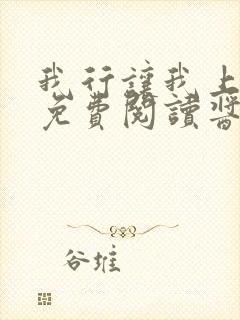 我行讓我上
免費閱讀醬
谷堆